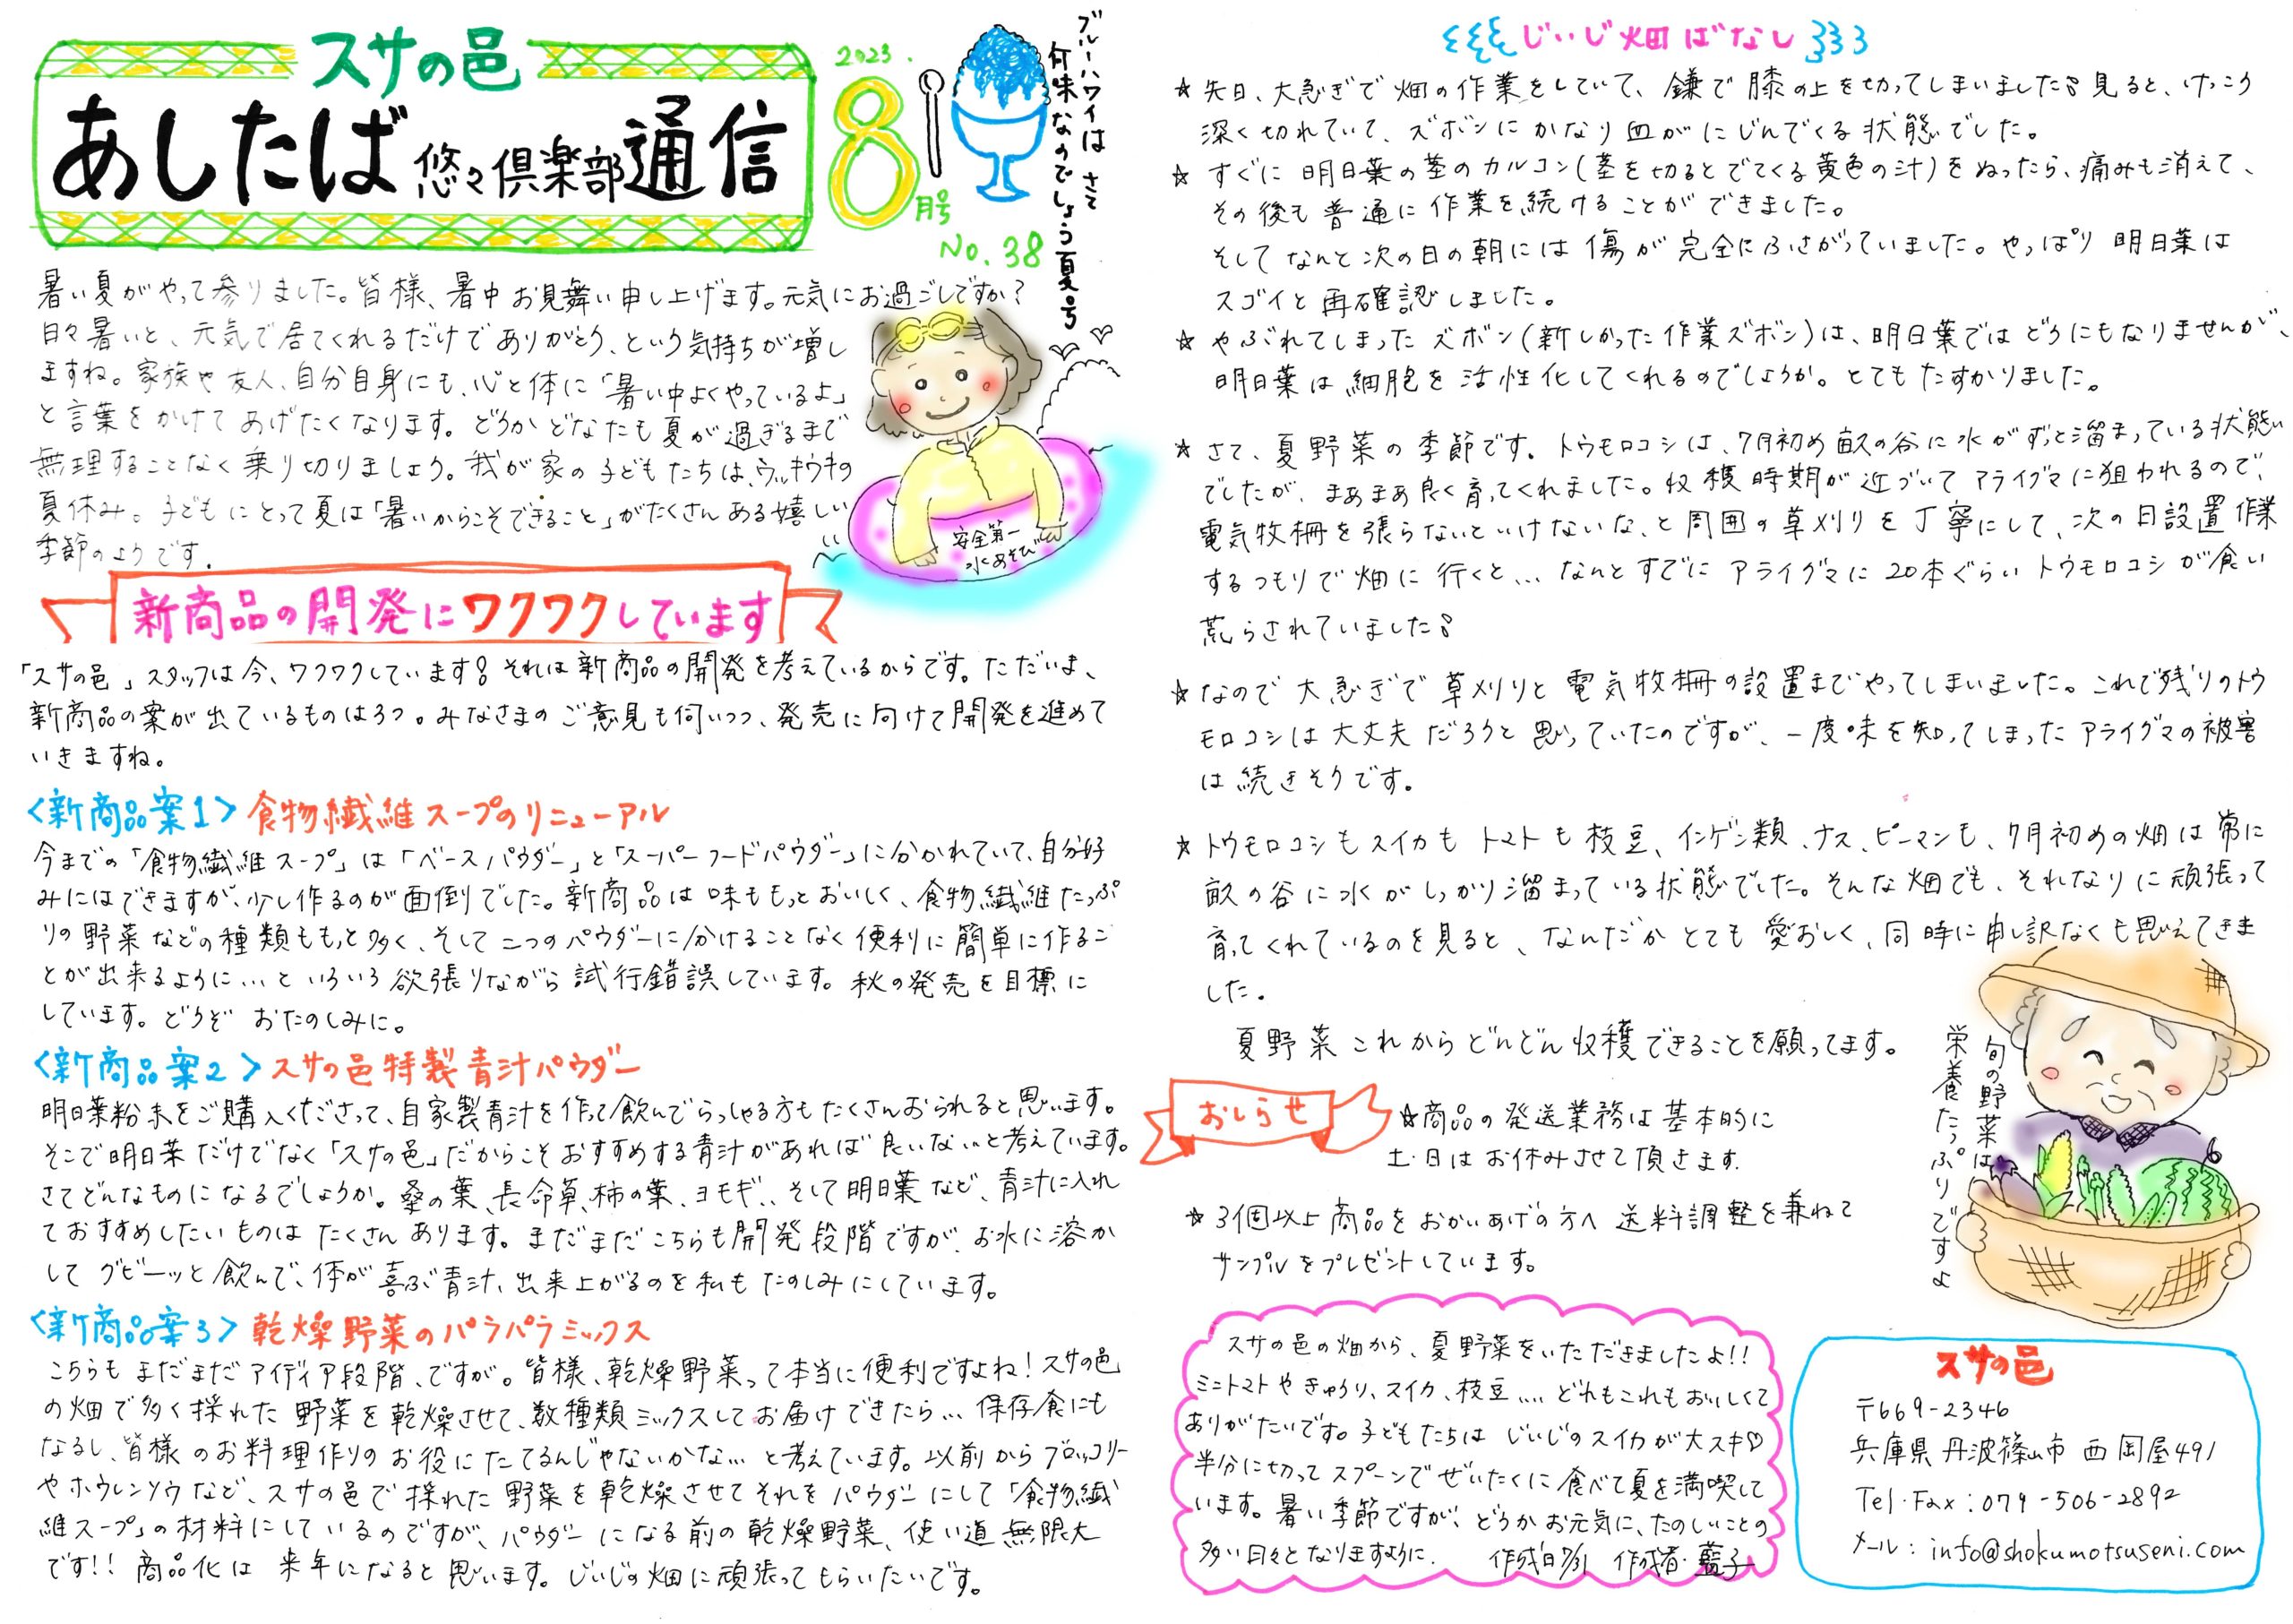 スサの邑
あしたば悠々倶楽部通信
2023.
8月号
No.38
ブルーハワイは さて
何味なのでしょう夏号
暑い夏がやって参りました。皆様、暑中お見舞い申し上げます。元気にお過ごしですか？
日々暑いと、元気で居てくれるだけでありがとう、という気持ちが増し
ますね。家族や友人、自分自身にも、心と体に「暑い中よくやっているよ」
と言葉をかけてあげたくなります。どうかどなたも夏が過ぎるまで
無理することなく乗り切りましょう。我が家の子どもたちは、ウッキウキの
夏休み。子どもにとって夏は「暑いからこそできること」がたくさんある嬉しい
季節のようです.
安全第一
水あそび
新商品の開発にワクワクしています
「スサの邑」スタッフは今、ワクワクしています！それは新商品の開発を考えているからです。ただいま、
新商品の案が出ているものは3つ。みなさまのご意見も伺いつつ、発売に向けて開発を進めて
いきますね。
<新商品案1> 食物繊維スープのリニューアル
今までの「食物繊維スープ」は「ベースパウダー」と「スーパーフードパウダー」に分かれていて、自分好
みにはできますが、少し作るのが面倒でした。新商品は味ももっとおいしく、食物繊維たっぷ
りの野菜などの種類ももっと多く、そして二つのパウダーに分けることなく便利に簡単に作るこ
とが出来るように…といろいろ欲張りながら試行錯誤しています。秋の発売を目標に
しています。どうぞ おたのしみに。
<新商品案2> スサの邑特製青汁パウダー
明日葉粉末をご購入くださって、自家製青汁を作って飲んでらっしゃる方もたくさんおられると思います。
そこで明日葉だけでなく「スサの邑」だからこそおすすめする青汁があれば良いな…と考えています。
さてどんなものになるでしょうか。桑の葉、長命草、柿の葉、ヨモギ、、そして明日葉など、青汁に入れ
ておすすめしたいものはたくさんあります。まだまだこちらも開発段階ですが、お水に溶か
してグビーッと飲んで、体が喜ぶ青汁、出来上がるのを私もたのしみにしています。
<新商品案3> 乾燥野菜のパラパラミックス
こちらもまだまだアイディア段階、ですが。皆様、乾燥野菜って本当に便利ですよね！スサの邑
の畑で多く採れた野菜を乾燥させて、数種類ミックスしてお届けできたら… 保存食にも
なるし、皆様のお料理作りのお役にたてるんじゃないかな… と考えています。以前からブロッコリー
やホウレンソウなど、スサの邑で採れた野菜を乾燥させてそれをパウダーにして「食物繊
維スープ」の材料にしているのですが、パウダーになる前の乾燥野菜、使い道無限大
です!! 商品化は来年になると思います。じいじの畑に頑張ってもらいたいです。
じいじ畑ばなし
☆ 先日、大急ぎで畑の作業をしていて、鎌で膝の上を切ってしまいました！見ると、けっこう
深く切れていて、ズボンにかなり血がにじんでくる状態でした。
☆ すぐに明日葉の茎のカルコン（茎を切るとでてくる黄色の汁）をぬったら、痛みも消えて、
その後も普通に作業を続けることができました。
そしてなんと次の日の朝には傷が完全にふさがっていました。やっぱり明日葉は
スゴイと再確認しました。
☆ やぶれてしまったズボン（新しかった作業ズボン）は、明日葉ではどうにもなりませんが、
明日葉は細胞を活性化してくれるのでしょうか。とてもたすかりました。
☆ さて、夏野菜の季節です。トウモロコシは、7月初め畝の谷に水がずっと溜まっている状態
でしたが、まあまあ良く育ってくれました。収穫時期が近づいてアライグマに狙われるので、
電気牧柵を張らないといけないな、と周囲の草刈りを丁寧にして、次の日設置作業
するつもりで畑に行くと… なんとすでにアライグマに20本ぐらいトウモロコシが食い
荒らされていました！
☆ なので大急ぎで草刈りと電気牧柵の設置までやってしまいました。これで残りのトウ
モロコシは大丈夫だろうと思っていたのですが、一度味を知ってしまったアライグマの被害
は続きそうです。
☆ トウモロコシもスイカもトマトも枝豆、インゲン類、ナス、ピーマンも、7月初めの畑は常に
畝の谷に水がしっかり溜まっている状態でした。そんな畑でも、それなりに頑張って
育ってくれているのを見ると、なんだかとても愛おしく、同時に申し訳なくも思えてきま
した。
夏野菜これからどんどん収穫できることを願ってます。
旬の野菜は
栄養たっぷりですよ
おしらせ
☆商品の発送業務は基本的に
土・日はお休みさせて頂きます.
☆ 3個以上商品をおかいあげの方へ 送料調整を兼ねて
サンプルをプレゼントしています。
スサの邑の畑から、夏野菜をいただきましたよ!!
ミニトマトやきゅうり、スイカ、枝豆…. どれもこれもおいしくて
ありがたいです。子どもたちはじいじのスイカが大スキ♡
半分に切ってスプーンでぜいたくに食べて夏を満喫して
います。暑い季節ですが、どうかお元気に、たのしいことの
多い日々となりますように. 作成日7/31 作成者・藍子
スサの邑
〒669-2346
兵庫県丹波篠山市西岡屋491
Tel・Fax：079-506-2892
メール：info@shokumotsuseni.com